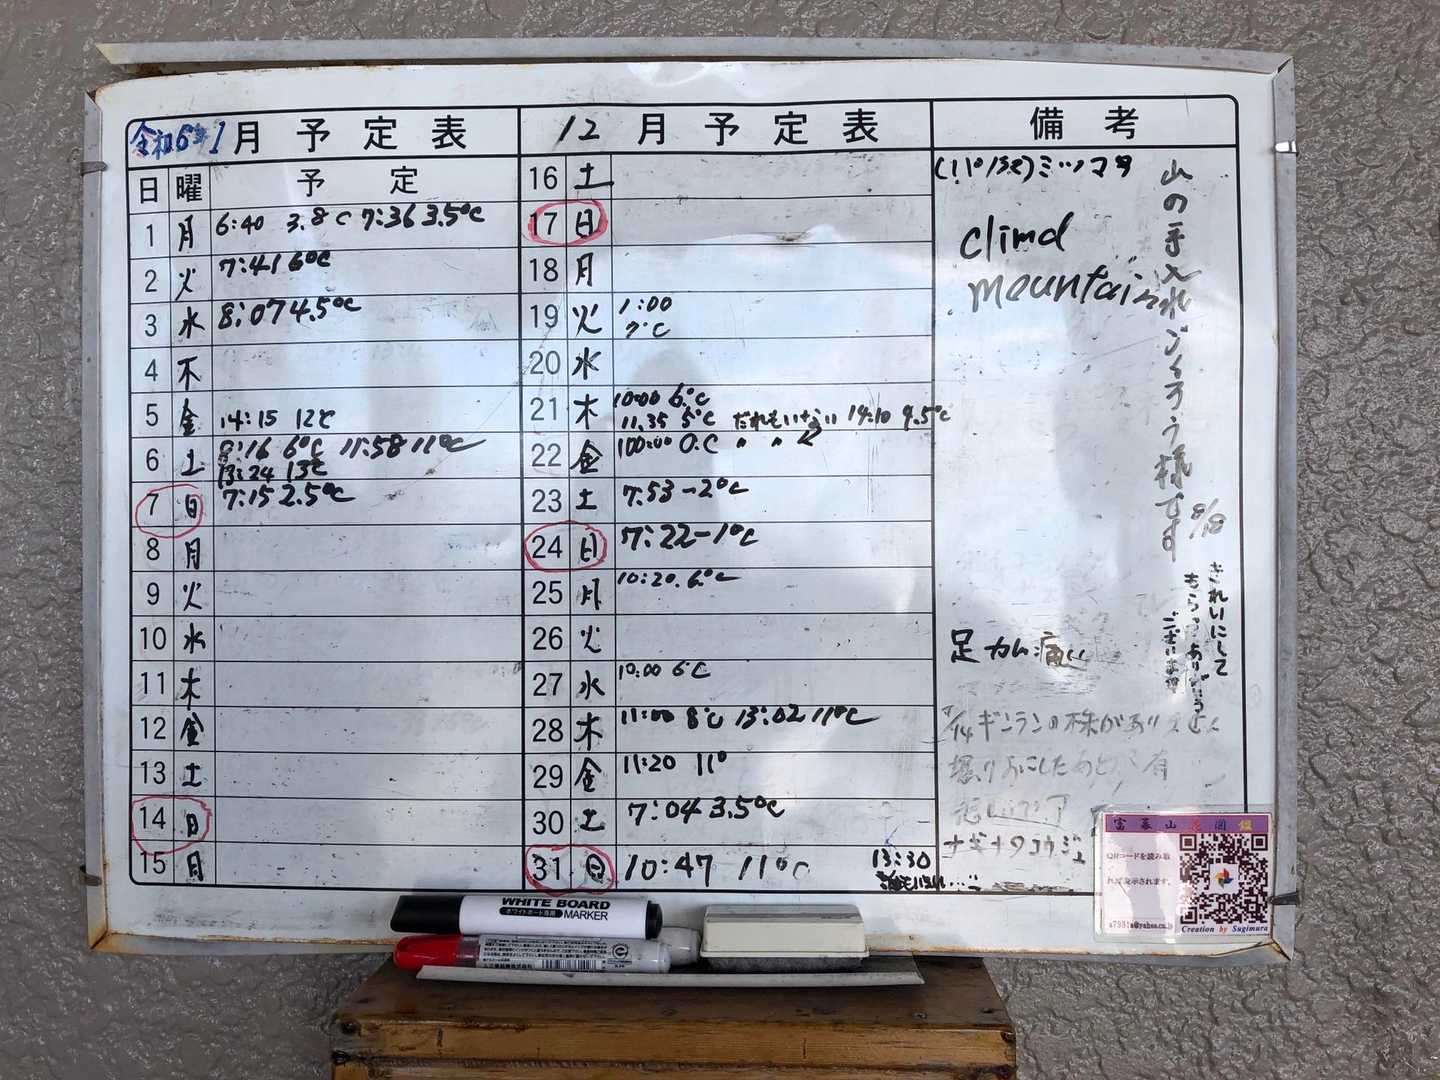 令和6年1月 予定表
日 曜 予 定
1 月 6:40 3.8℃ 7:36 3.5℃
2 火 7:41 6℃
3 水 8:07 4.5℃
4 木
5 金 14:15 12℃
6 土 8:16 6℃ 11:58 11℃
13:24 13℃
7 日 7:15 2.5℃
8 月
9 火
10 水
11 木
12 金
13 土
14 日
15 月
12月 予定表
16 土
17 日
18 月
19 火 1:00
7℃
20 水
21 木 10:00 6℃
11.35 5℃ だれもいない 14:10 9.5℃
22 金 100:00 0.C 〃 〃
23 土 7:53 -2℃
24 日 7:22 -1℃
25 月 10:20. 6℃
26 火
27 水 10:00 6℃
28 木 11:00 8℃ 13:02 11℃
29 金 11:20 11°
30 土 7:04 3.5℃
31 日 10:47 11℃ 13:30
備考
ミツマタ
climd
mountain
山の手入れごくろう様です
8/8
きれいにして
もらって ありがとう
ございます
足カム痛い
ギンランの株があり
ナギナタコウジュ
富幕山花図鑑
QRコードを読み取
れば表示されます。
Creation by Sugimura
WHITE BOARD
ホワイトボード専用 MARKER